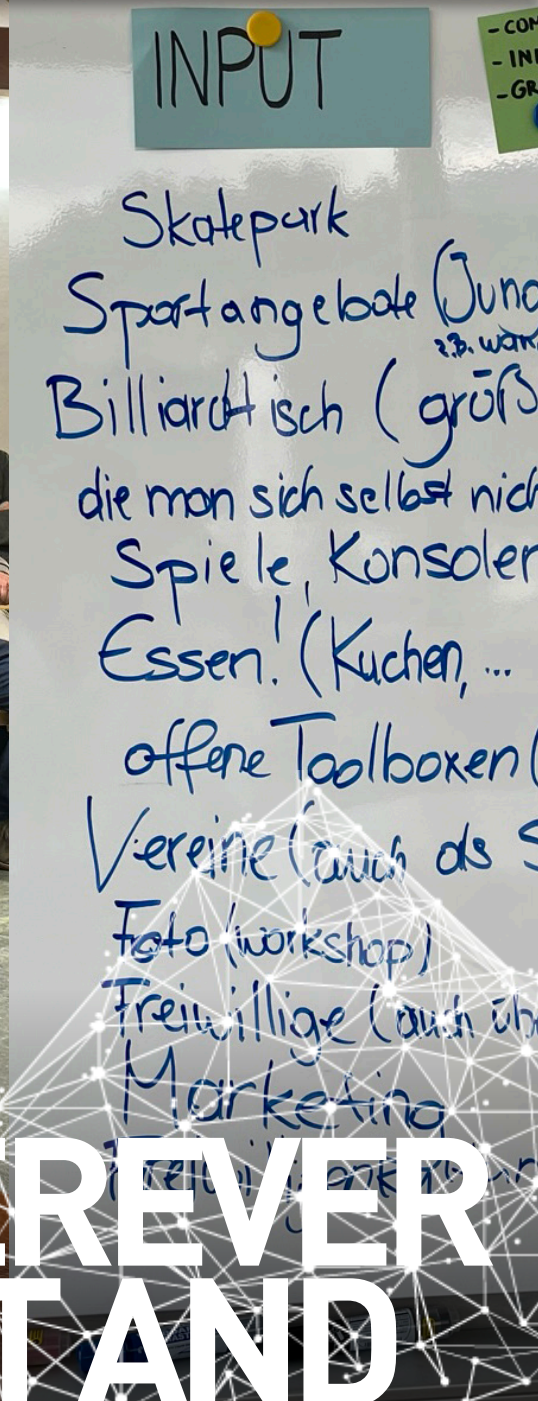 INPUT
- COM
- IN
- GR
Skatepark
Sportangebote (Jung
z.B. work
Billiardtisch (größ
die man sich selbst nich
Spiele, Konsolen
Essen! (Kuchen, ...
offene Toolboxen (
Vereine (auch als S
Foto (workshop)
Freiwillige (auch üb
Marketing
EREVER
T AND